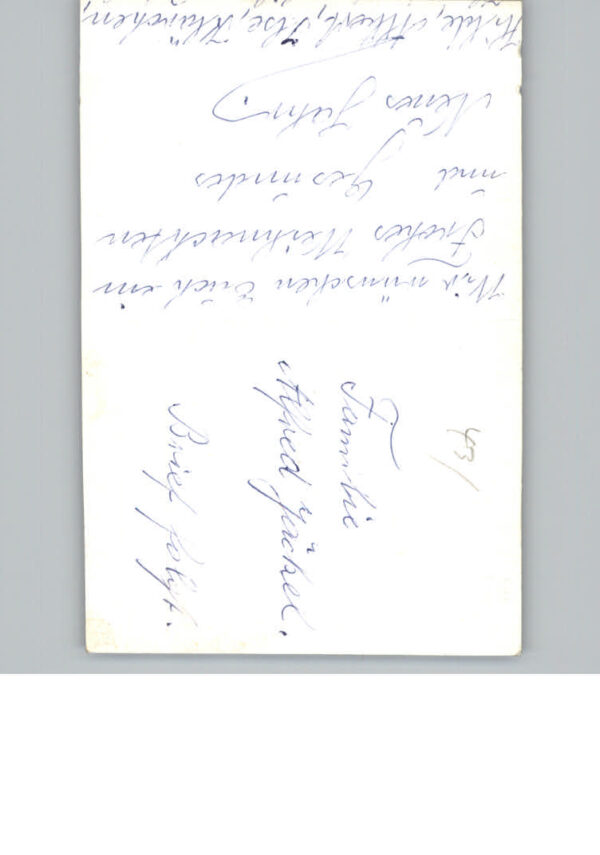 Wir wünschen Euch ein
Frohes Weihnachten
und Gesundes
Neues Jahr
Hilde, Albert, Ilse, Klärchen,
Familie
Alfred Jäckel.
Brief folgt.